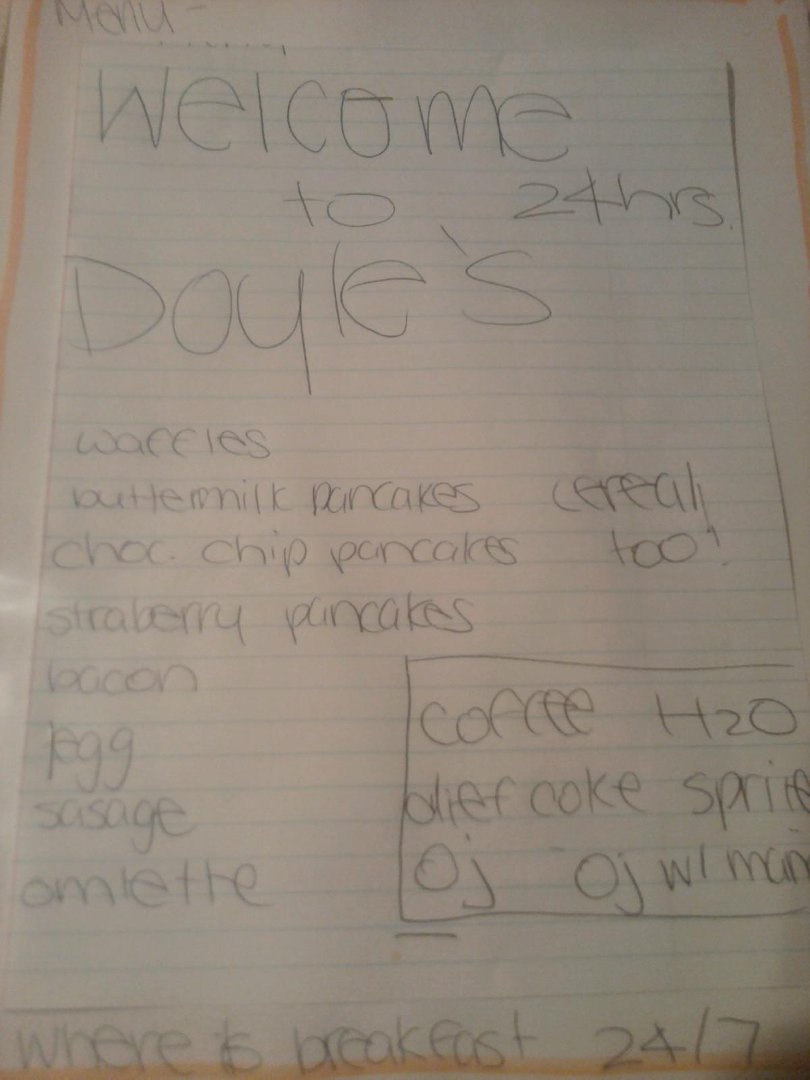 Menu -
Welcome
to 24hrs.
Doyle's
waffles
buttermilk pancakes cereal
choc. chip pancakes too!
straberry pancakes
bacon
egg
coffee H2O
sasage
diet coke sprite
omlette
Oj Oj w/
where is breakfast 24/7